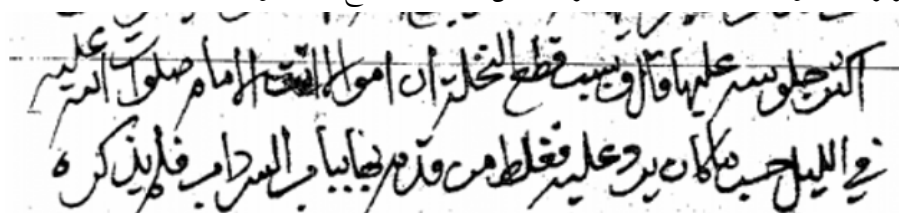 اكثر جلوسه عليها قال وسبب قطع النخلة ان اموالا الامام صلوات الله عليه
في الليل حسب ما كان يرد عليه فغلط من قدم بها بباب السرداب فلم يذكره